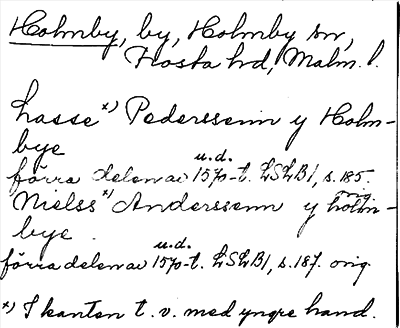 Holmby, by, Holmby sn,
Frosta hd, Malm. l.
Lasse x) Pederssenn y Holm-
bye
u.d.
förra delen av 1570-t. LSLB1, s. 185.
orig
Nielss x) Anderssenn y Holm-
bye
u.d.
förra delen av 1570-t. LSLB1, s. 187. orig.
x) I kanten t. v. med yngre hand.